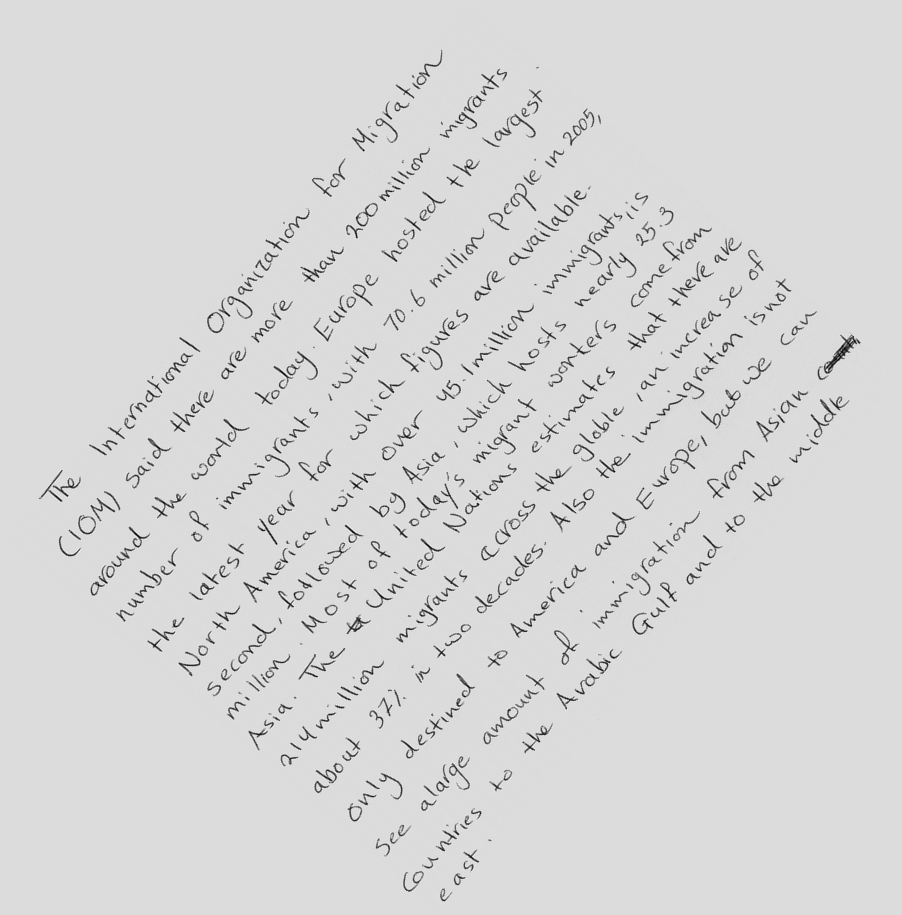 The International Organization for Migration
(IOM) said there are more than 200 million migrants
around the world today. Europe hosted the largest
number of immigrants, with 70.6 million people in 2005,
the latest year for which figures are available.
North America, with over 45.1 million immigrants, is
second, followed by Asia, which hosts nearly 25.3
million. Most of today's migrant workers come from
Asia. The United Nations estimates that there are
214 million migrants across the globe, an increase of
about 37% in two decades. Also the immigration is not
only destined to America and Europe, but we can
see a large amount of immigration from Asian
countries to the Arabic Gulf and to the middle
east.